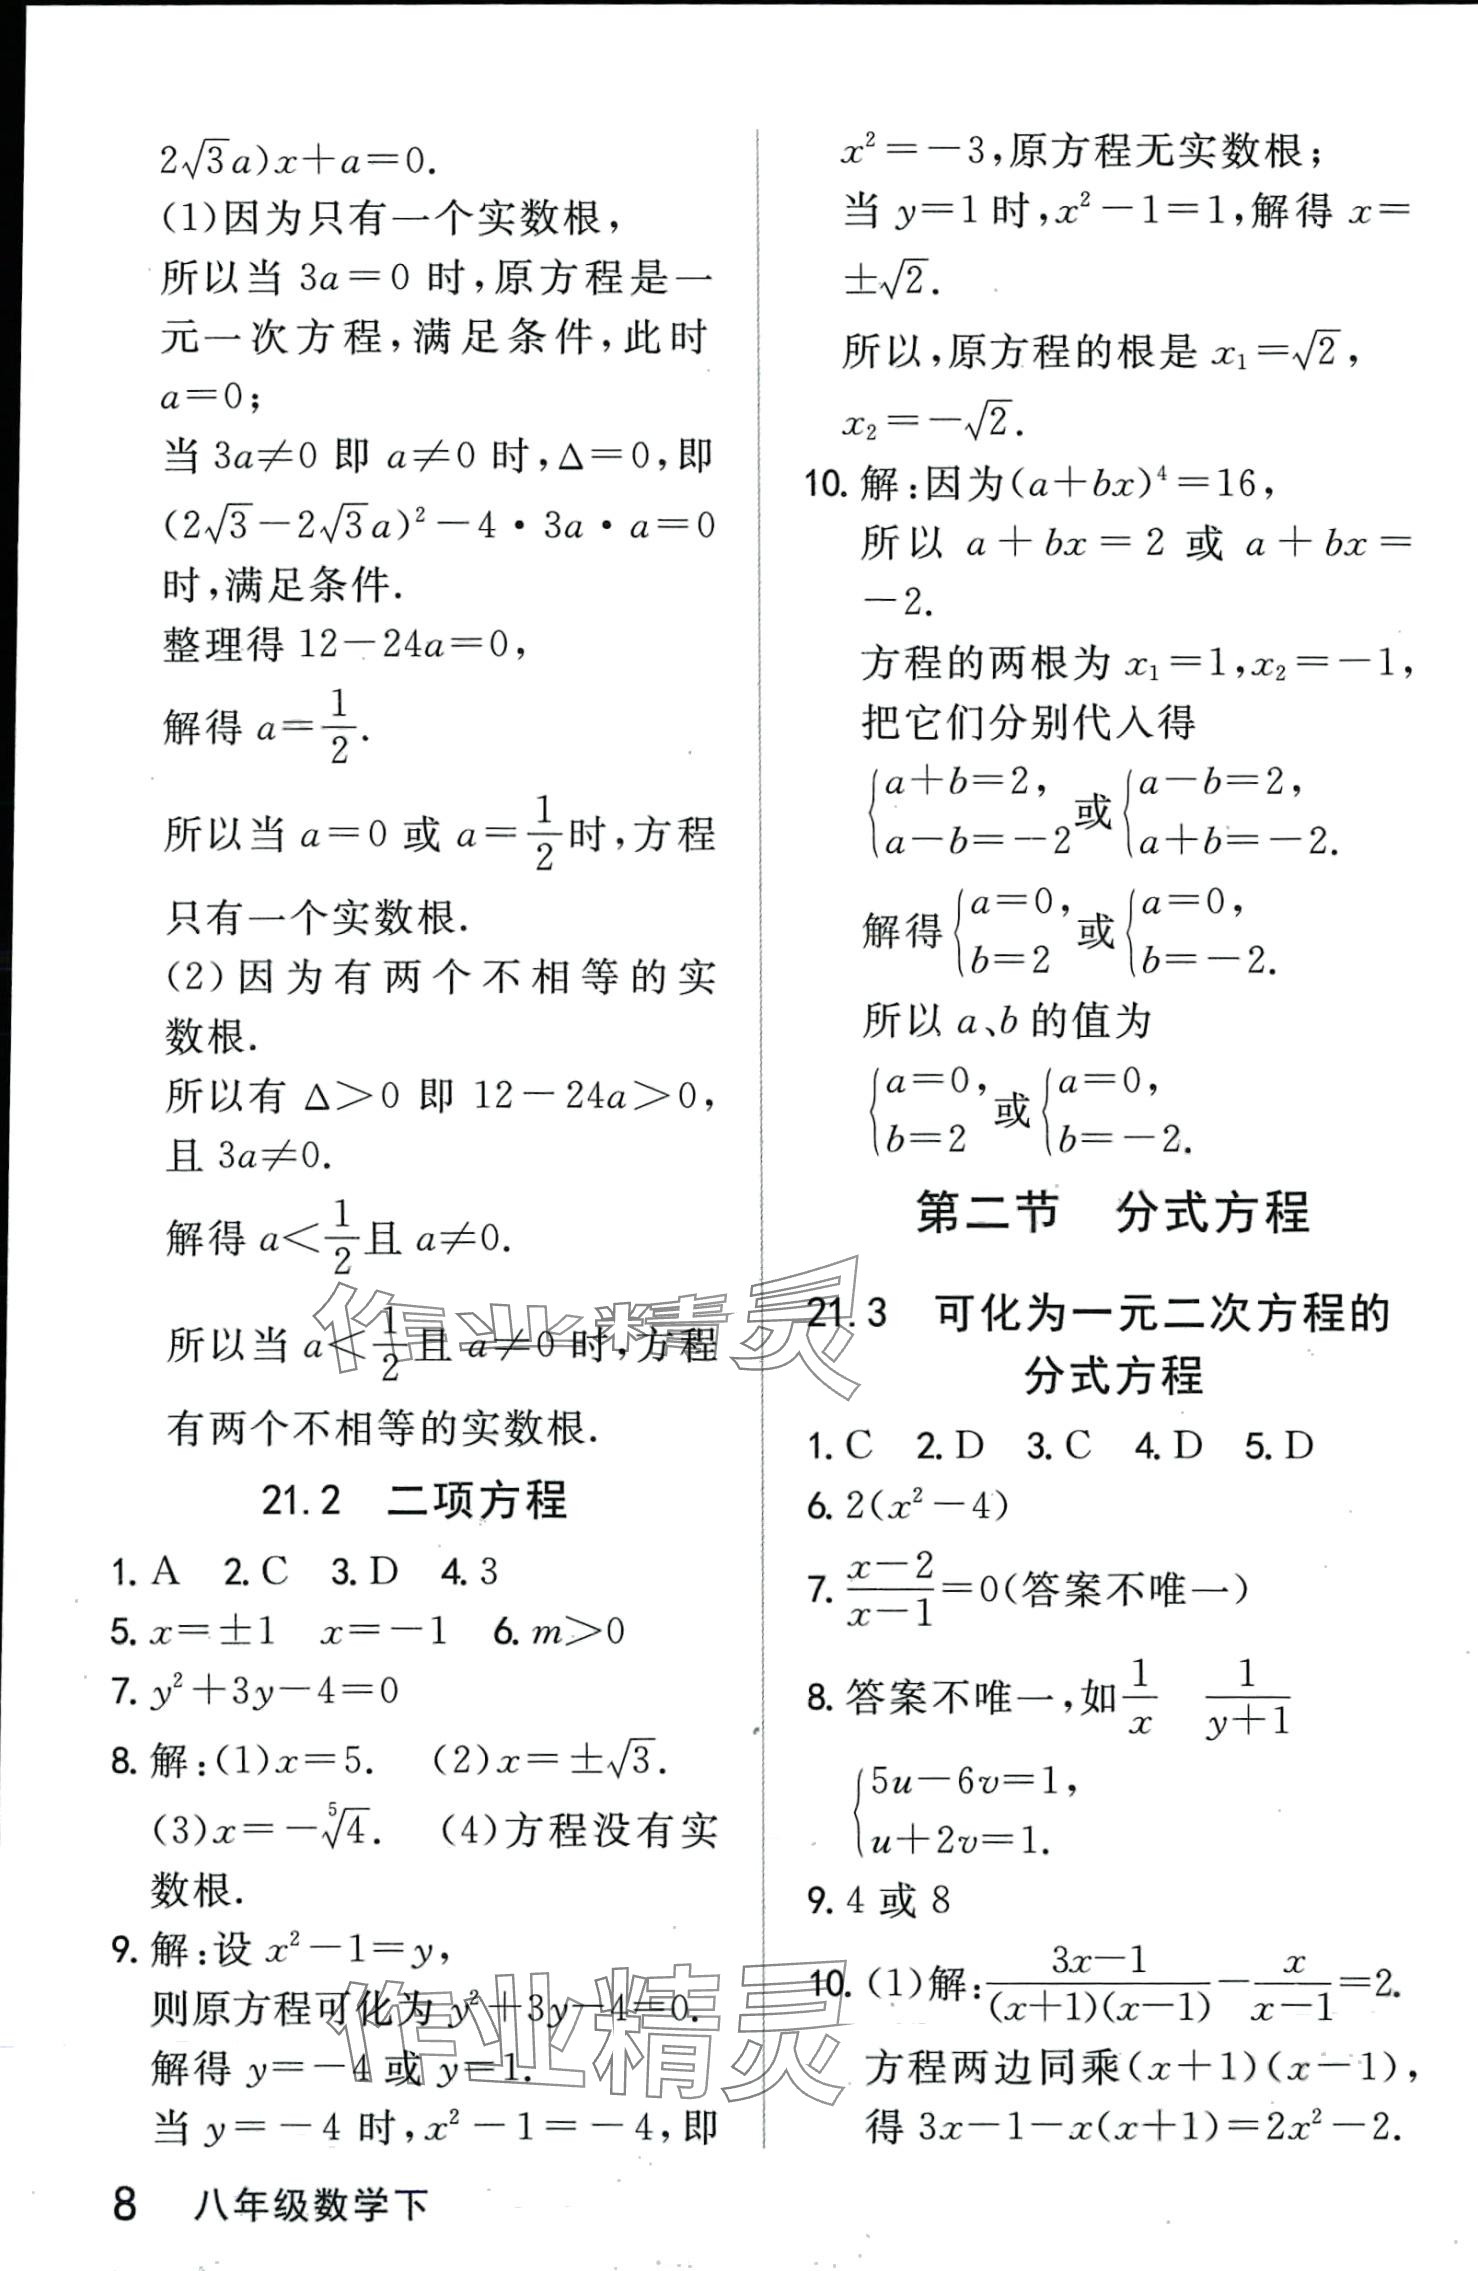 2√3a)x+a=0.
(1)因为只有一个实数根,
所以当 3a=0 时,原方程是一
元一次方程,满足条件,此时
a=0;
当 3a≠0 即 a≠0 时,Δ=0,即
(2√3-2√3a)²-4·3a·a=0
时,满足条件.
整理得 12-24a=0,
解得 a=1/2.
所以当 a=0 或 a=1/2时,方程
只有一个实数根.
(2)因为有两个不相等的实
数根.
所以有 Δ>0 即 12-24a>0,
且 3a≠0.
解得 a<1/2且 a≠0.
所以当 a<1/2且 a≠0 时,方程
有两个不相等的实数根.
21.2 二项方程
1. A 2. C 3. D 4. 3
5. x=±1 x=-1 6. m>0
7. y²+3y-4=0
8. 解:(1)x=5. (2)x=±√3.
(3)x=-⁵√4. (4)方程没有实
数根.
9. 解:设 x²-1=y,
则原方程可化为 y²+3y-4=0.
解得 y=-4 或 y=1.
当 y=-4 时,x²-1=-4,即
x²=-3,原方程无实数根;
当 y=1 时,x²-1=1,解得 x=
±√2.
所以,原方程的根是 x₁=√2,
x₂=-√2.
10. 解:因为(a+bx)⁴=16,
所以 a+bx=2 或 a+bx=
-2.
方程的两根为 x₁=1,x₂=-1,
把它们分别代入得
{a+b=2, a-b=-2 或 {a-b=2, a+b=-2.
解得 {a=0, b=2 或 {a=0, b=-2.
所以 a、b 的值为
{a=0, b=2 或 {a=0, b=-2.
第二节 分式方程
21.3 可化为一元二次方程的
分式方程
1. C 2. D 3. C 4. D 5. D
6. 2(x²-4)
7. (x-2)/(x-1)=0(答案不唯一)
8. 答案不唯一,如 1/x 1/(y+1)
{5u-6v=1,
u+2v=1.
9. 4 或 8
10. (1)解:(3x-1)/((x+1)(x-1))-x/(x-1)=2.
方程两边同乘(x+1)(x-1),
得 3x-1-x(x+1)=2x²-2.
8 八年级数学下
作业精灵
作业精灵